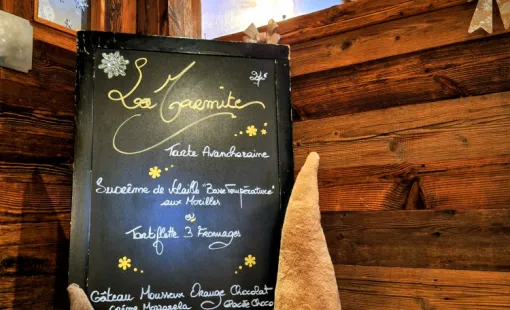 24€
La Marmite
Tarte Avancharaine
Suprême de Volaille "Basse Température"
aux Morilles
ou
Tartiflette 3 Fromages
Gâteau Mousseux Orange Chocolat
Crème Mozzarela Glacée Choco